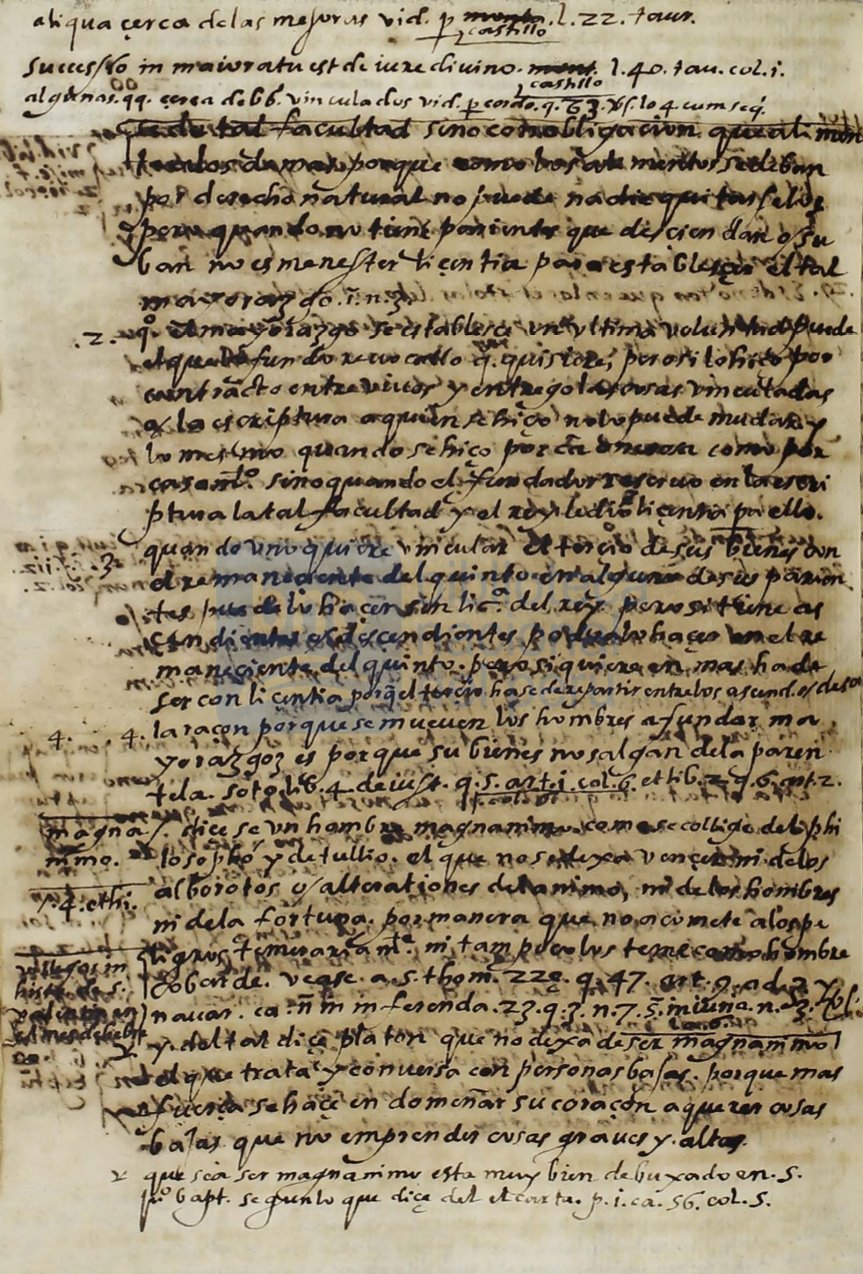 aliqua çerca delas mejoras vid. p castillo. l. 22. taur.
successio in maioratu est de iure divino. castillo l. 40. tau. col. i.
algunas. qq. cerca de bb. vinculados vid. p cordo. q. 63. lo 4 cum seq.
tal facultad sino con obligacion que alimen
te alos demas porque como los alimentos se deban
por derecho natural no puede nadie quitarselos
pero quando no tiene parientes que desciendan o su
ban no es menester liçentia para establesçer el tal
mayorazgo. i. n. 3.
.2. qº. el mayorazgo se establesce en ultima voluntad puede
el que lo fundo revocallo q. quisiere, pero si lo hiço por
contracto entre vivos y entrego las cosas vinculadas
o la escriptura a quien se hiço no lo puede mudar y
lo mesmo quando se hiço por cã onerosa como por
casamtº. sino quando el fundador reservo en la escri
ptura la tal facultad y el rey le dio liçentia pa ello.
3. quando uno quiere vincular el terçio de sus bienes con
el remaneciente del quinto en alguno de sus parien
tes puedelo haçer sin licª. del rey. pero si tiene as
cendientes o descendientes puedelo haçer en el re
maneçiente del quinto. pero si quiere en mas ha de
ser con liçentia porq el terçio hase de repartir entre los asend. o desce
4. 4. la raçon porque se mueven los hombres a fundar ma
yorazgoz es porque su bienes no salgan dela paren
tela. soto lib. 4. de iust. q. 5. art. i. col. 6. et lib. 2. q. 6. art 2.
magna /. diçese un hombre magnanimo. como se collige del phi
nimo. losopho y de tullio. el que no se dexa vençer ni de los
alborotos y alterationes del animo, ni de los hombres
4. ethi. ni dela fortuna. por manera que no acomete a los pe
ligros temerariamte. ni tampoco los teme como hombre
cobarde. vease. a. s. thom. 22e. q. 47. art. 9. ad. 2. y
navar. ca. nõ in inferenda. 23. q. 3. n. 7.
2. y. del tal diçe platon que no dexa de ser magnanimo
el que trata y conversa con personas bajas. porque mas
fuerça se haçe en domeñar su coraçon a querer cosas
bajas que no emprender cosas graves y. altas.
que sea ser magnanimo esta muy bien debuxado en. S.
juº bapt. segun lo que diçe del el carta. p. i. ca. 56. col. 5.